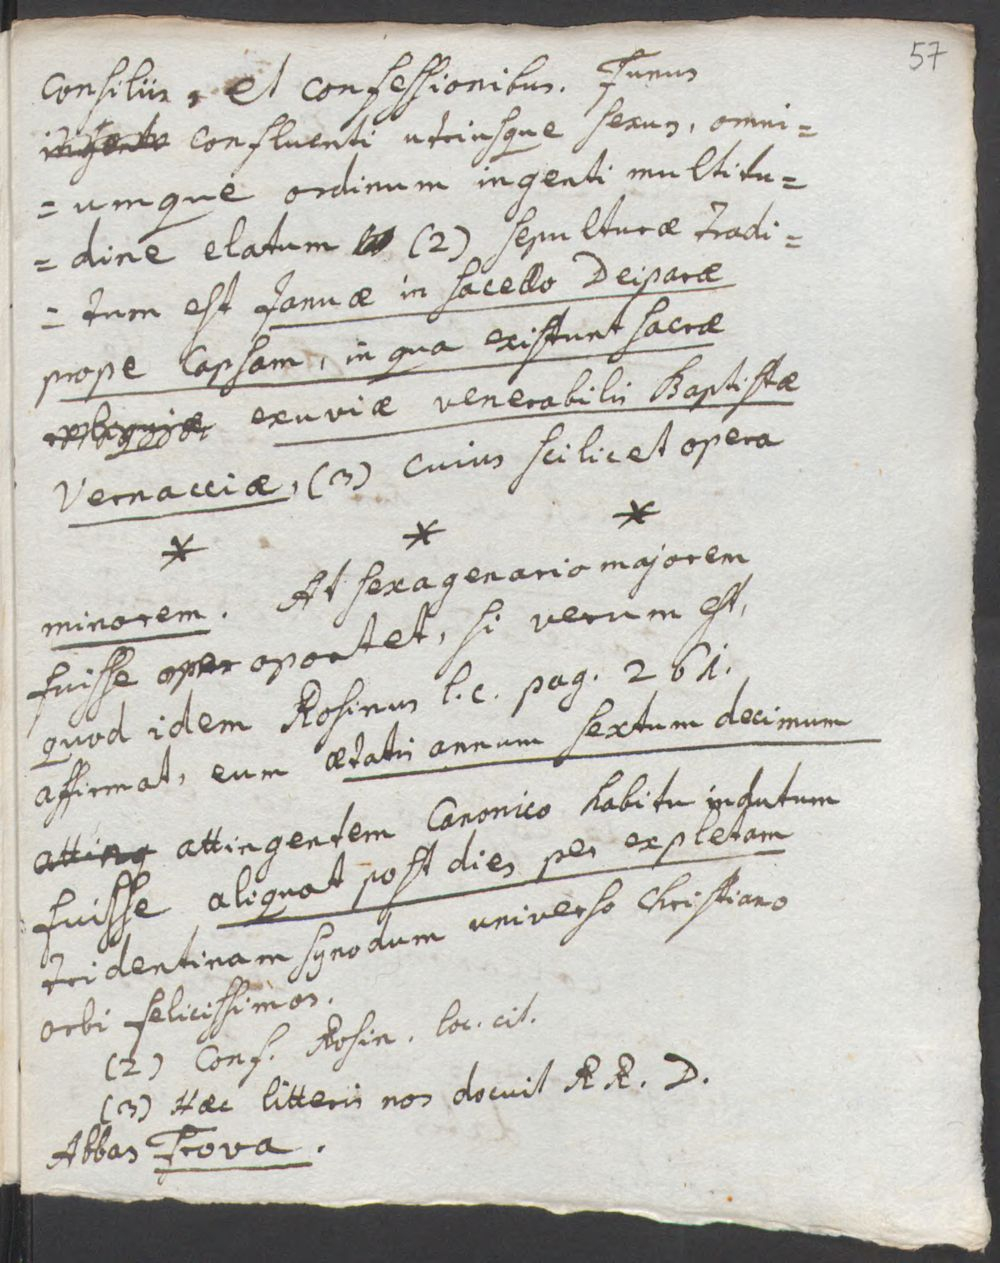 57
consiliis, et confessionibus. Funus
ingenti confluenti utriusque sexus, omni=
=umque ordinum ingenti multitu=
=dine elatum (2) sepulturæ tradi=
=tum est Januæ in sacello Deiparæ
prope Capsam, in qua existunt sacræ
reliquiæ exuviæ venerabilis Baptistæ
Vernacciæ, (3) cuius scilicet opera
* * *
minorem. At sexagenario majorem
fuisse oper oportet, si verum est,
quod idem Rosinus l.c. pag. 261.
affirmat, eum ætatis annum sextum decimum
atting attingentem Canonico habitu indutum
fuisse aliquot post dies per expletam
tridentinam synodum universo Christiano
orbi felicissimos.
(2) Conf. Rosin. loc. cit.
(3) Hæc litteris nos docuit RR. D.
Abbas Trova.